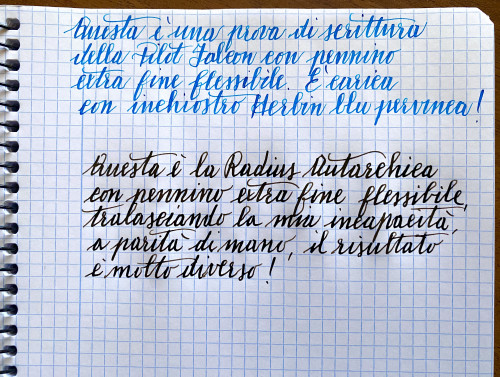 Questa è una prova di scrittura
della Pilot Falcon con pennino
extra fine flessibile. È carica
con inchiostro Herbin blu pervinca!
Questa è la Radius Autarchica
con pennino extra fine flessibile,
tralasciando la mia incapacità,
a parità di mano, il risultato
è molto diverso!